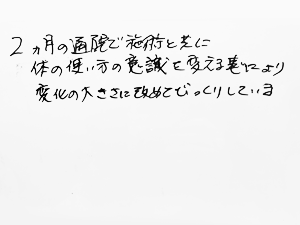 2ヵ月の通院で施術と共に
体の使い方の意識を変える事により
変化の大きさに改めてびっくりしていま